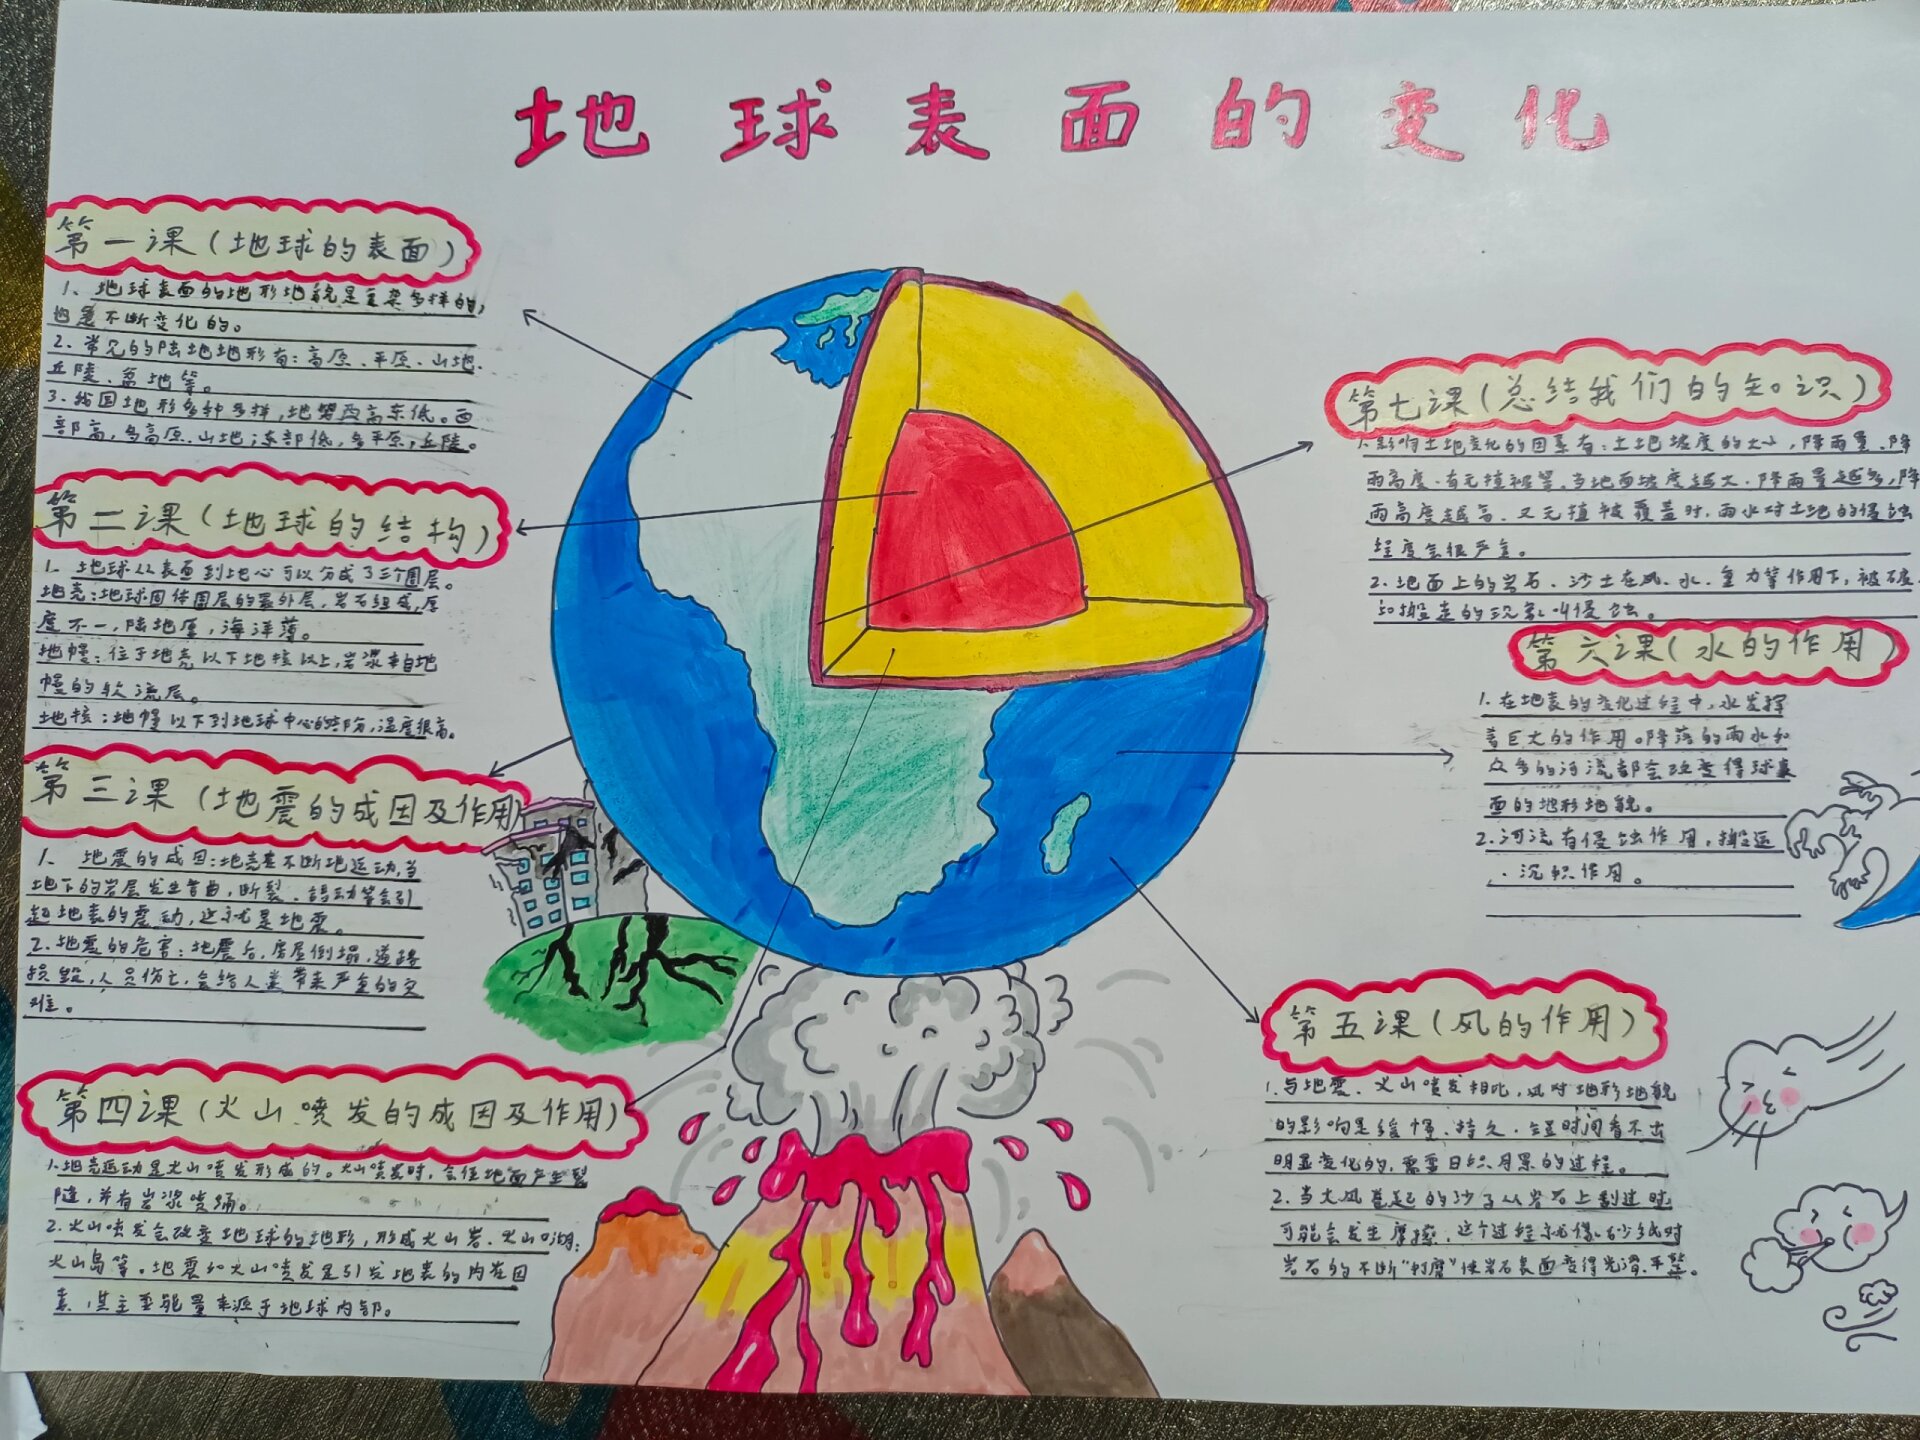 地球表面的变化
第一课(地球的表面)
1、地球表面的地形地貌是复杂多样的,
也是不断变化的。
2、常见的陆地地形有:高原、平原、山地、
丘陵、盆地等。
3、我国地形多种多样,地势西高东低。西
部高,多高原、山地;东部低,多平原,丘陵。
第二课(地球的结构)
1、地球从表面到地心可以分成了三个圈层。
地壳:地球固体圈层的最外层,岩石组成,厚
度不一,陆地厚,海洋薄。
地幔:位于地壳以下地核以上,岩浆来自地
幔的软流层。
地核:地幔以下到地球中心的部分,温度很高。
第三课(地震的成因及作用)
1、地震的成因:地壳在不断地运动,当
地下的岩层发生弯曲,断裂、错动等会引
起地表的震动,这就是地震。
2、地震的危害:地震后,房屋倒塌,道路
损毁,人员伤亡,会给人类带来严重的灾
难。
第四课(火山喷发的成因及作用)
1、地壳运动是火山喷发形成的。火山喷发时,会使地面产生裂
隙,并有岩浆喷涌。
2、火山喷发会改变地球的地形,形成火山岩、火山口湖,
火山岛等。地震和火山喷发是引发地表的内在因
素,其主要能量来源于地球内部。
第七课(总结我们的知识)
1、影响土地变化的因素有:土地坡度的大小,降雨量、降
雨高度、有无植被等。当地面坡度越大、降雨量越多,降
雨高度越高、又无植被覆盖时,雨水对土地的侵蚀
程度会很严重。
2、地面上的岩石、沙土在风、水、重力等作用下,被破坏
和搬走的现象叫侵蚀。
第六课(水的作用)
1、在地表的变化过程中,水发挥
着巨大的作用。降落的雨水和
众多的河流都会改变得球表
面的地形地貌。
2、河流有侵蚀作用,搬运
、沉积作用。
第五课(风的作用)
1、与地震、火山喷发相比,风对地形地貌
的影响是缓慢、持久、短时间看不出
明显变化的,需要日积月累的过程。
2、当大风卷起的沙子从岩石上刮过时
可能会发生摩擦,这个过程就像砂纸对
岩石的不断“打磨”使岩石表面变得光滑、平整。